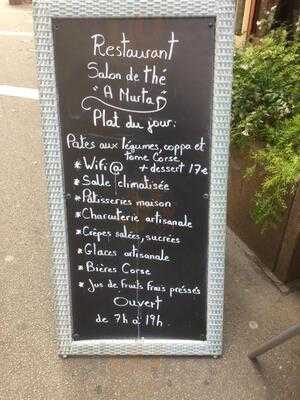 Restaurant
Salon de thé
"A Murta"
Plat du jour:
Pates aux légumes, coppa et
Tome Corse
* Wifi @ + dessert 17€
* Salle climatisée
* Pâtisseries maison
* Charcuterie artisanale
* Crêpes salées, sucrées
* Glaces artisanale
* Bières Corse
* Jus de Fruits Frais pressés
Ouvert
de 7h à 19h.